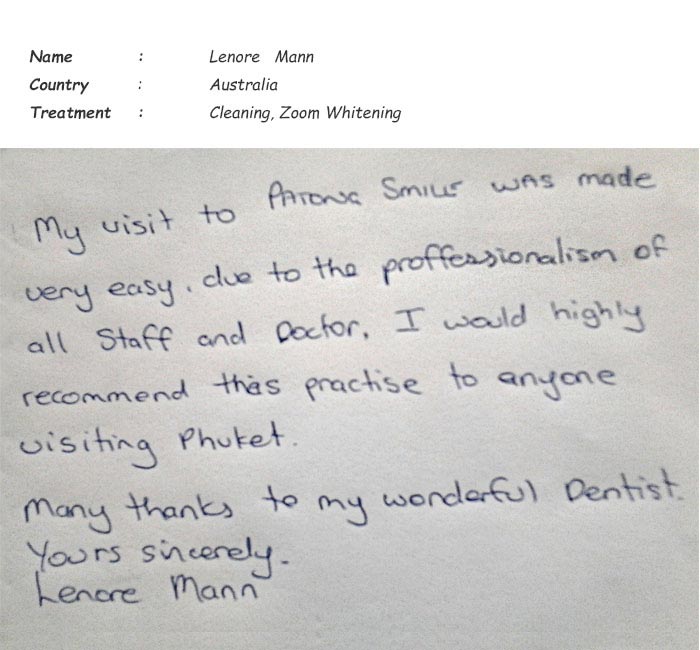 Name : Lenore Mann
Country : Australia
Treatment : Cleaning, Zoom Whitening
My visit to Patong Smile was made
very easy. due to the proffessionalism of
all Staff and Doctor, I would highly
recommend this practise to anyone
visiting Phuket.
Many thanks to my wonderful Dentist.
Yours sincerely.
Lenore Mann